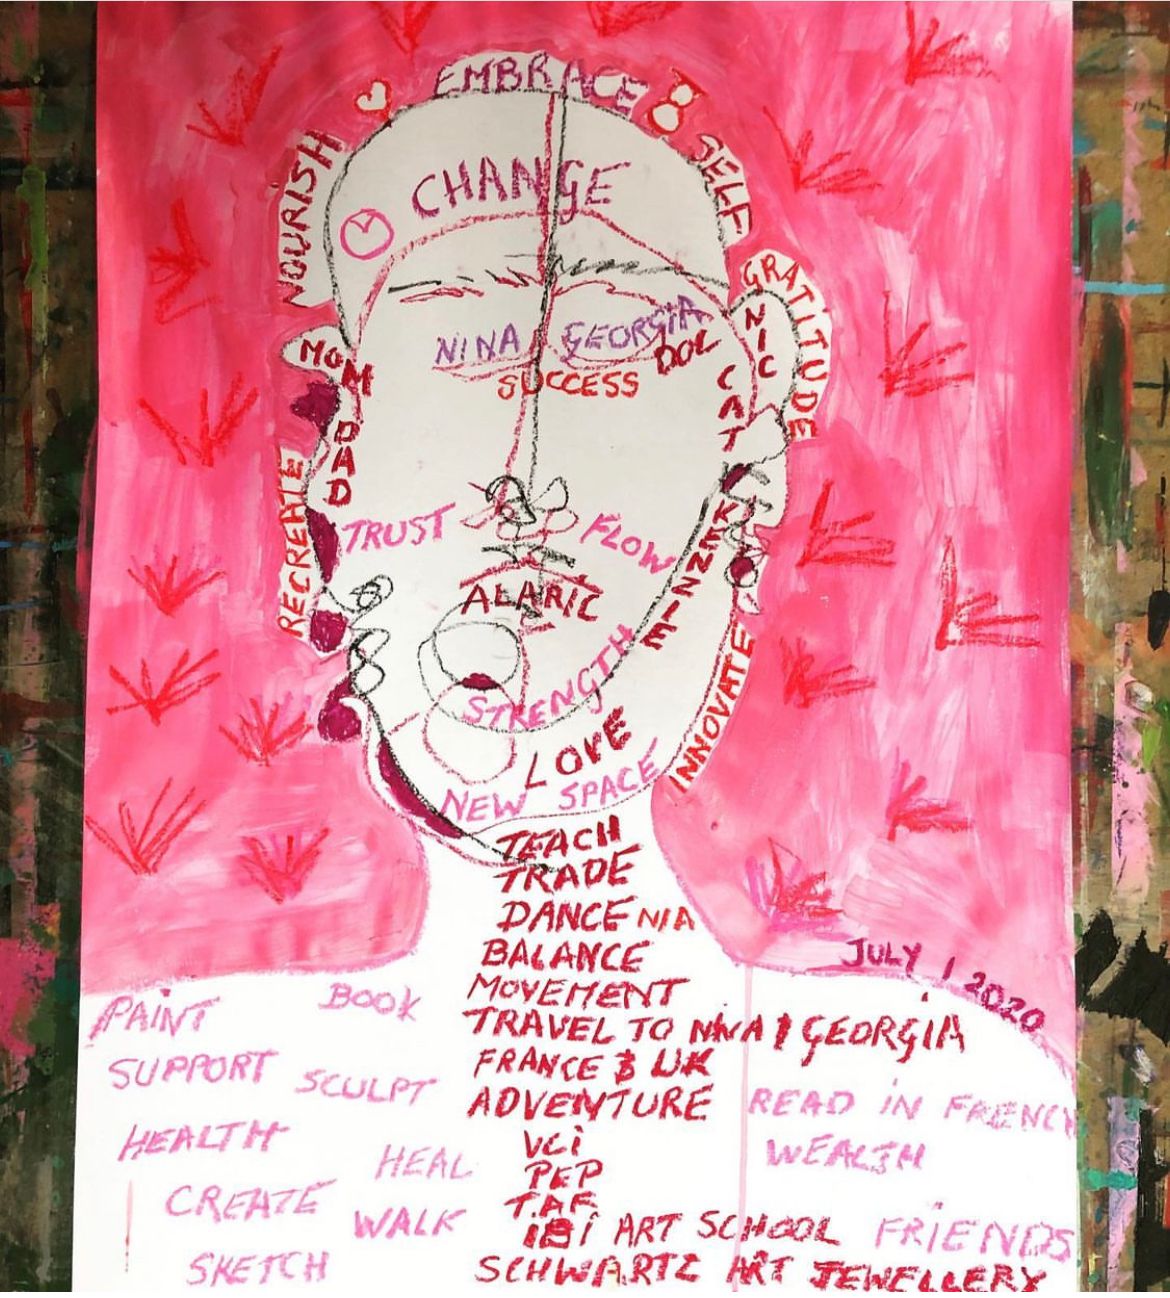 EMBRACE
SELF
NOURISH
CHANGE
GRATITUDE
NIC
MOM
DAD
NINA GEORGIA
DOL
SUCCESS
CAT
RECREATE
TRUST
FLOW
KENZIE
ALARIC
STRENGTH
INNOVATE
LOVE
NEW SPACE
TEACH
TRADE
DANCE NIA
BALANCE
MOVEMENT
TRAVEL TO NINA & GEORGIA
FRANCE & UK
ADVENTURE
VCi
PEP
T.AF
iBi ART SCHOOL
SCHWARTZ ART JEWELLERY
JULY 1 2020
PAINT
BOOK
SUPPORT
SCULPT
HEALTH
HEAL
CREATE
WALK
SKETCH
READ iN FRENCH
WEALTH
FRiENDS